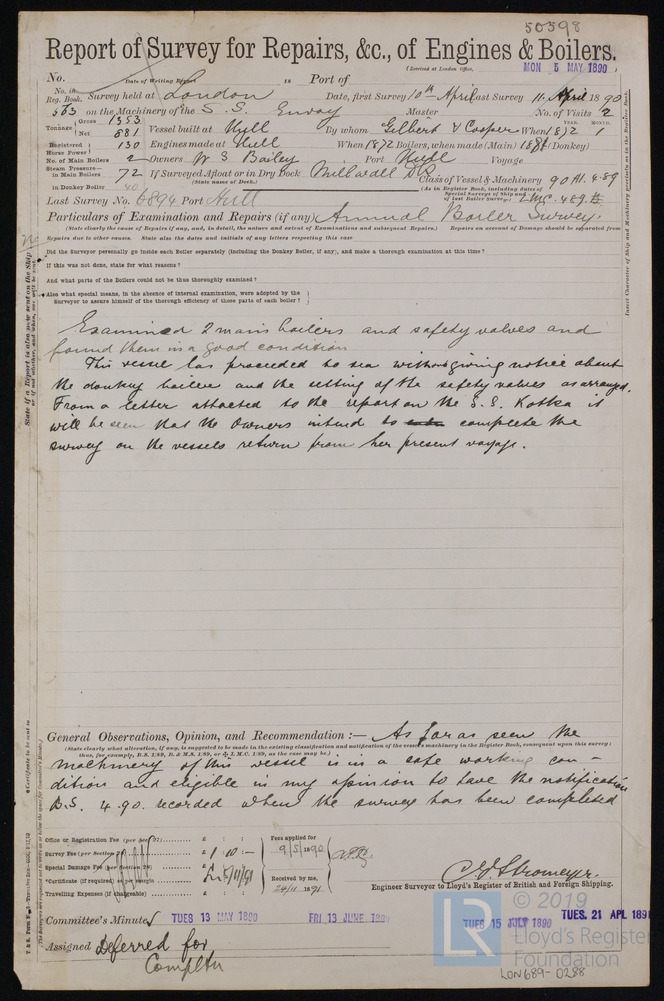 50598
Report of Survey for Repairs, &c., of Engines & Boilers.
(Received at London Office, MON 5 MAY 1890
No. Date of Writing Report 18 Port of
No. in Reg. Book. Survey held at London Date, first Survey 10th April Last Survey 11 April 1890
563 on the Machinery of the S.S. Envoy Master No. of Visits 2
Tonnage Gross 1353 Net 881 Vessel built at Hull By whom Gilbert & Cooper When 1872
YEAR. MONTH.
Registered Horse Power 130 Engines made at Hull When 1872 Boilers, when made (Main) 1881 (Donkey)
No. of Main Boilers 2 Owners W S Bailey Port Hull Voyage
Steam Pressure in Main Boilers 72 If Surveyed Afloat or in Dry Dock Millwall Class of Vessel & Machinery 90 A1. 4.89
(State name of Dock.)
in Donkey Boiler 40 (As in Register Book, including dates of Special Surveys of Ship and of last Boiler Survey.) LMC. 4.89
Last Survey No. 6894 Port Hull
Particulars of Examination and Repairs (if any) Annual Boiler Survey.
(State clearly the cause of Repairs if any, and, in detail, the nature and extent of Examinations and subsequent Repairs.) Repairs on account of Damage should be separated from
Repairs due to other causes. State also the dates and initials of any letters respecting this case
Did the Surveyor personally go inside each Boiler separately (including the Donkey Boiler, if any), and make a thorough examination at this time?
If this was not done, state for what reasons?
And what parts of the Boilers could not be thus thoroughly examined?
Also what special means, in the absence of internal examination, were adopted by the
Surveyor to assure himself of the thorough efficiency of those parts of each boiler?
Examined 2 main boilers and safety valves and
found them in a good condition
This vessel has proceeded to sea without giving notice about
the donkey boiler and the setting of the safety valves as arranged.
From a letter attached to the report on the S.S. Kotka it
will be seen that the Owners intend to complete the
survey on the vessels return from her present voyage.
General Observations, Opinion, and Recommendation :— As far as seen the
(State clearly what alteration, if any, is suggested to be made in the existing classification and notification of the vessel's machinery in the Register Book, consequent upon this survey:
thus, for example, B.S. 1/89, B.&M.S. 1/89, or L.M.C. 1/89, as the case may be.)
machinery of this vessel is in a safe working con-
dition and eligible in my opinion to have the notification
B.S. 4.90. recorded when the survey has been completed
Office or Registration Fee (per Sec 27) £ : :
Survey Fee (per Section 28) £ 1 : 10 : —
Special Damage Fee (per Section 28) £
*Certificate (if required) as per margin
Travelling Expenses (if chargeable) £ : :
Fees applied for
9/5/1890
Received by me,
24/11 1891
C. E. Stromeyer.
Engineer Surveyor to Lloyd's Register of British and Foreign Shipping.
Committee's Minute TUES 13 MAY 1890 FRI 13 JUNE 1890 TUES 15 JULY 1890 TUES. 21 APL 1891
Assigned Deferred for
Compltn
LR
© 2019
Lloyd's Register
Foundation
LON689-0288